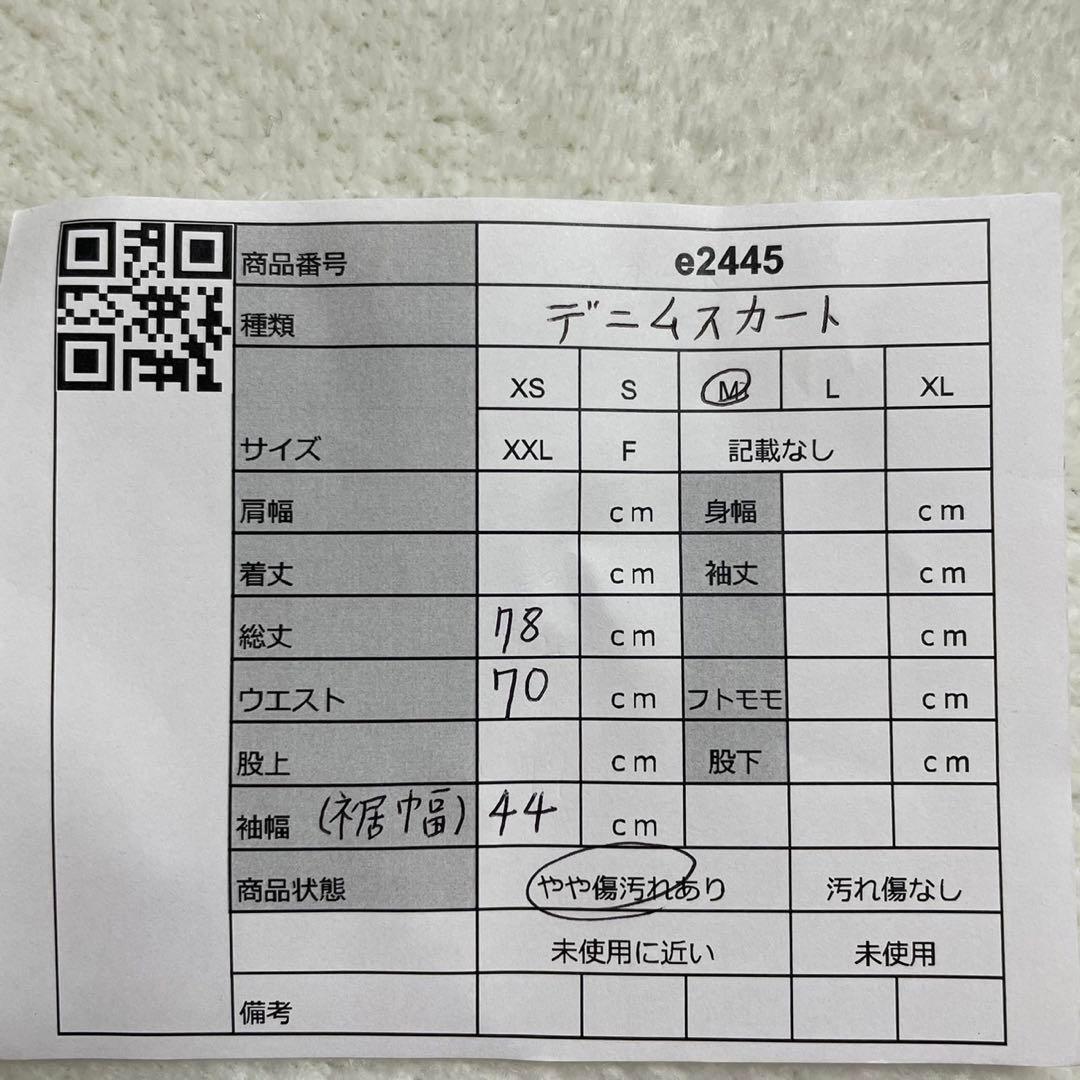 商品番号 e2445
種類 デニムスカート
XS S M L XL
サイズ XXL F 記載なし
肩幅 cm 身幅 cm
着丈 cm 袖丈 cm
総丈 78 cm cm
ウエスト 70 cm フトモモ cm
股上 cm 股下 cm
袖幅 (裾巾幅) 44 cm
商品状態 やや傷汚れあり 汚れ傷なし
未使用に近い 未使用
備考